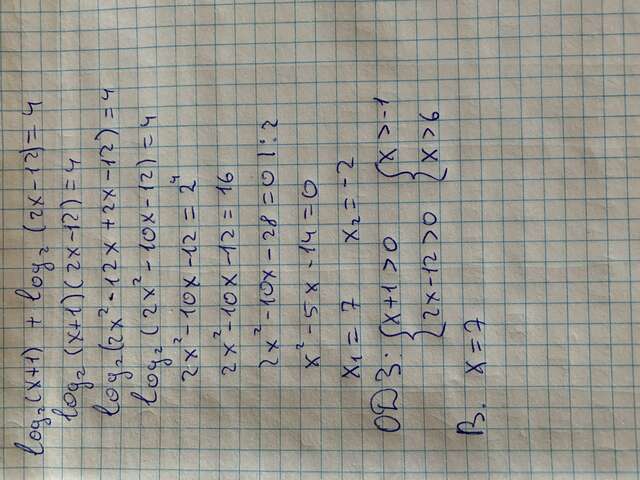 log₂(x+1) + log₂(2x-12) = 4
log₂(x+1)(2x-12) = 4
log₂(2x²-12x+2x-12) = 4
log₂(2x²-10x-12) = 4
2x²-10x-12 = 2⁴
2x²-10x-12 = 16
2x²-10x-28 = 0 |:2
x²-5x-14 = 0
x₁ = 7 x₂ = -2
ОДЗ: { x+1>0 { x>-1
{ 2x-12>0 { x>6
В. x=7